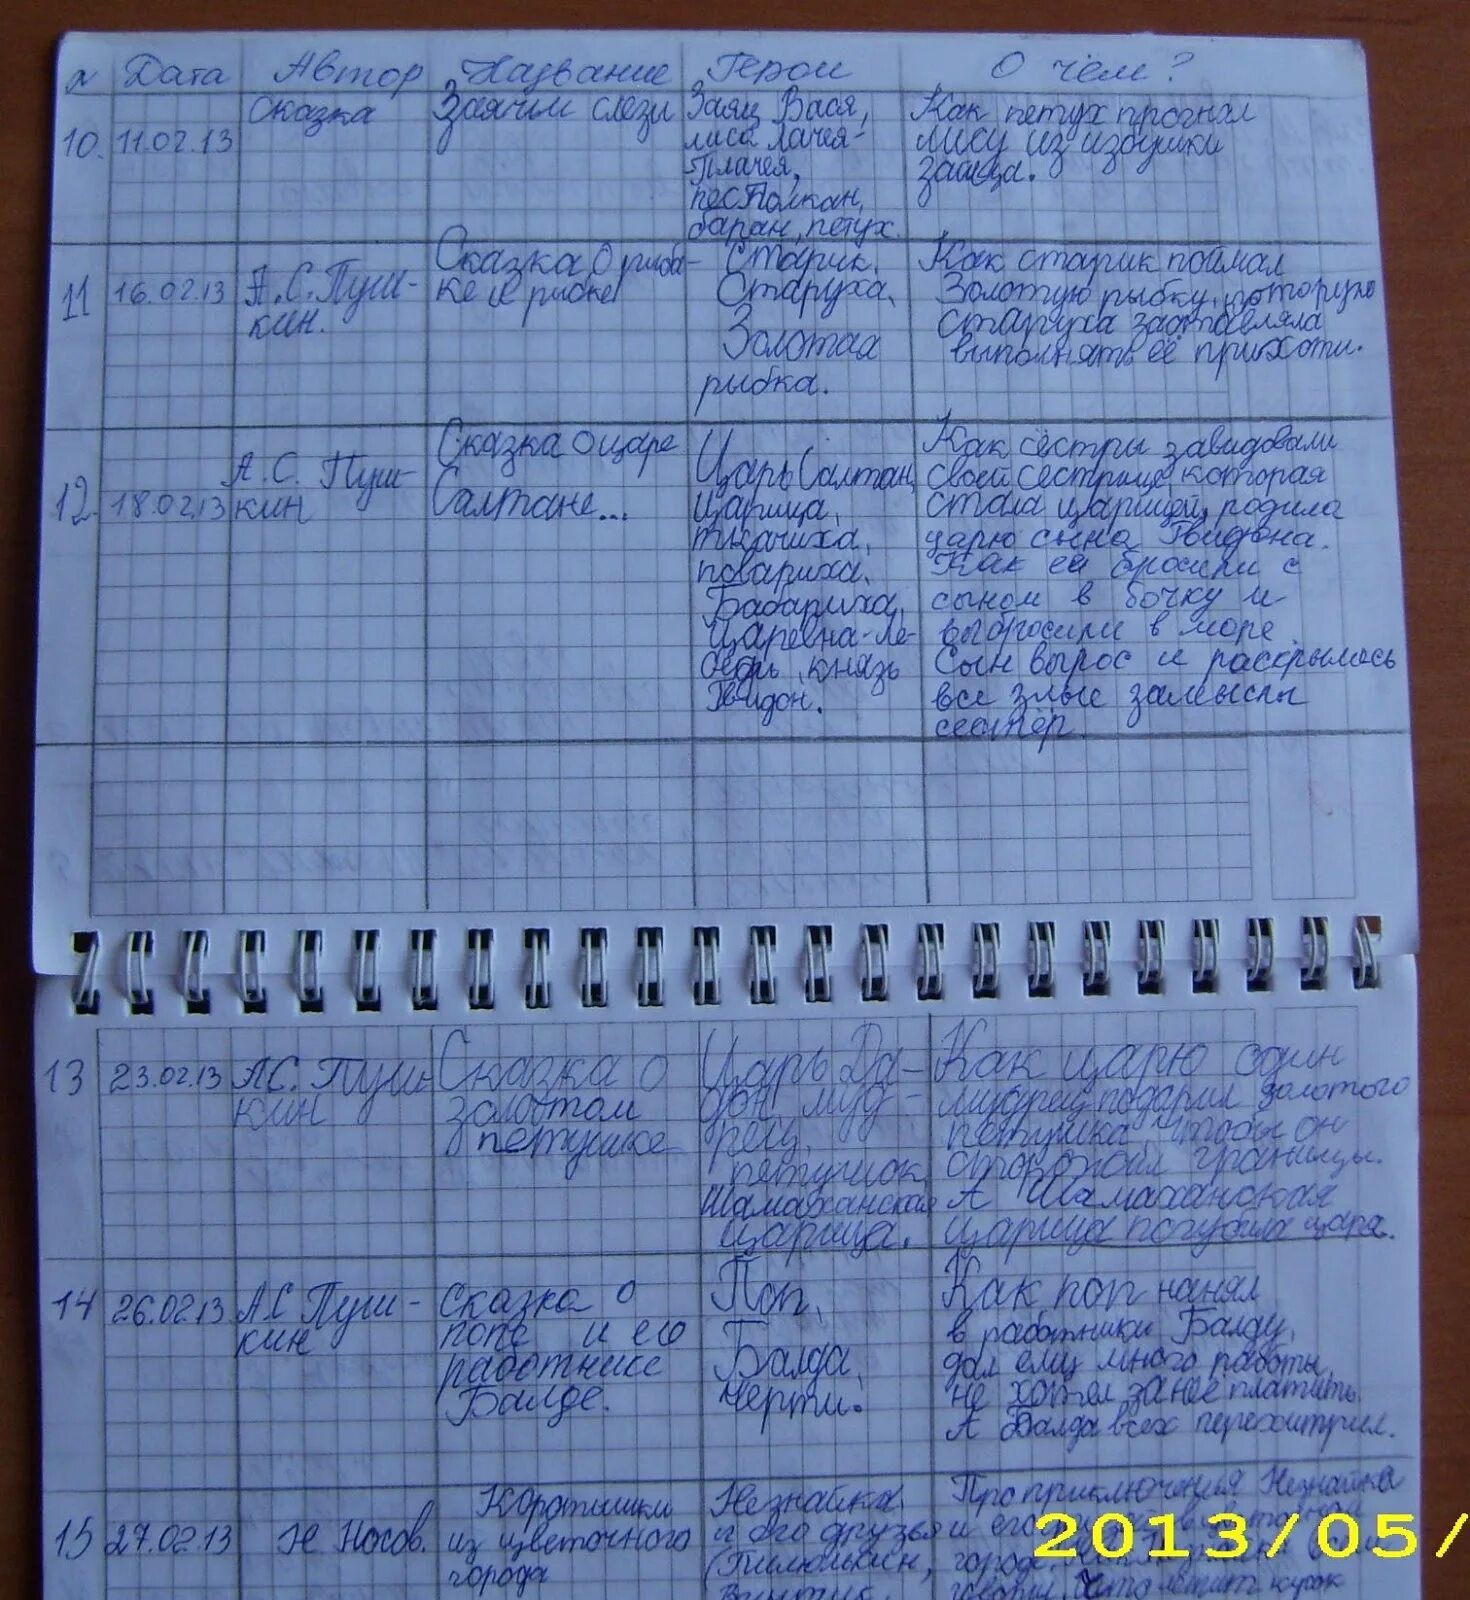 № Дата Автор Название Герои О чём?
10. 11.02.13 Сказка Заячьи слёзы Заяц Вася, Как петух прогнал
лиса Лачея- лису из избушки
Плачея, зайца.
пес Полкан,
баран, петух.
11 16.02.13 А.С. Пуш- Сказка О рыба- Старик. Как старик поймал
кин. ке и рыбке Старуха, Золотую рыбку, которую
Золотая старуха заставляла
рыбка. выполнять её прихоти.
12. 18.02.13 А. С. Пуш- Сказка о царе Царь Салтан, Как сёстры завидовали
кин Салтане... царица, своей сестрице, которая
ткачиха, стала царицей, родила
повариха, царю сына Гвидона.
Бабариха, Как её бросили с
царевна-Ле- сыном в бочку и
бедь, князь выбросили в море
Гвидон. Сын вырос и раскрылось
все злые замыслы
сестёр.
13 23.02.13 А.С. Пуш- Сказка о Царь Да- Как царю один
кин золотом дон, муд- мудрец подарил золотого
петушке рец, петушка, чтобы он
петушок, сторожил границы.
Шамаханская А Шамаханская
царица. царица погубила царя.
14 26.02.13 А.С Пуш- Сказка о Поп, Как поп нанял
кин попе и его Балда, в работники Балду,
работнике черти. дал ему много работы,
Балде. не хотел за неё платить.
А Балда всех перехитрил.
15 27.02.13 Н Носов. Коротышки Незнайка Про приключения Незнайки
из цветочного и его друзья и его
города (Пилюлькин, городе.
кусок
2013/05/